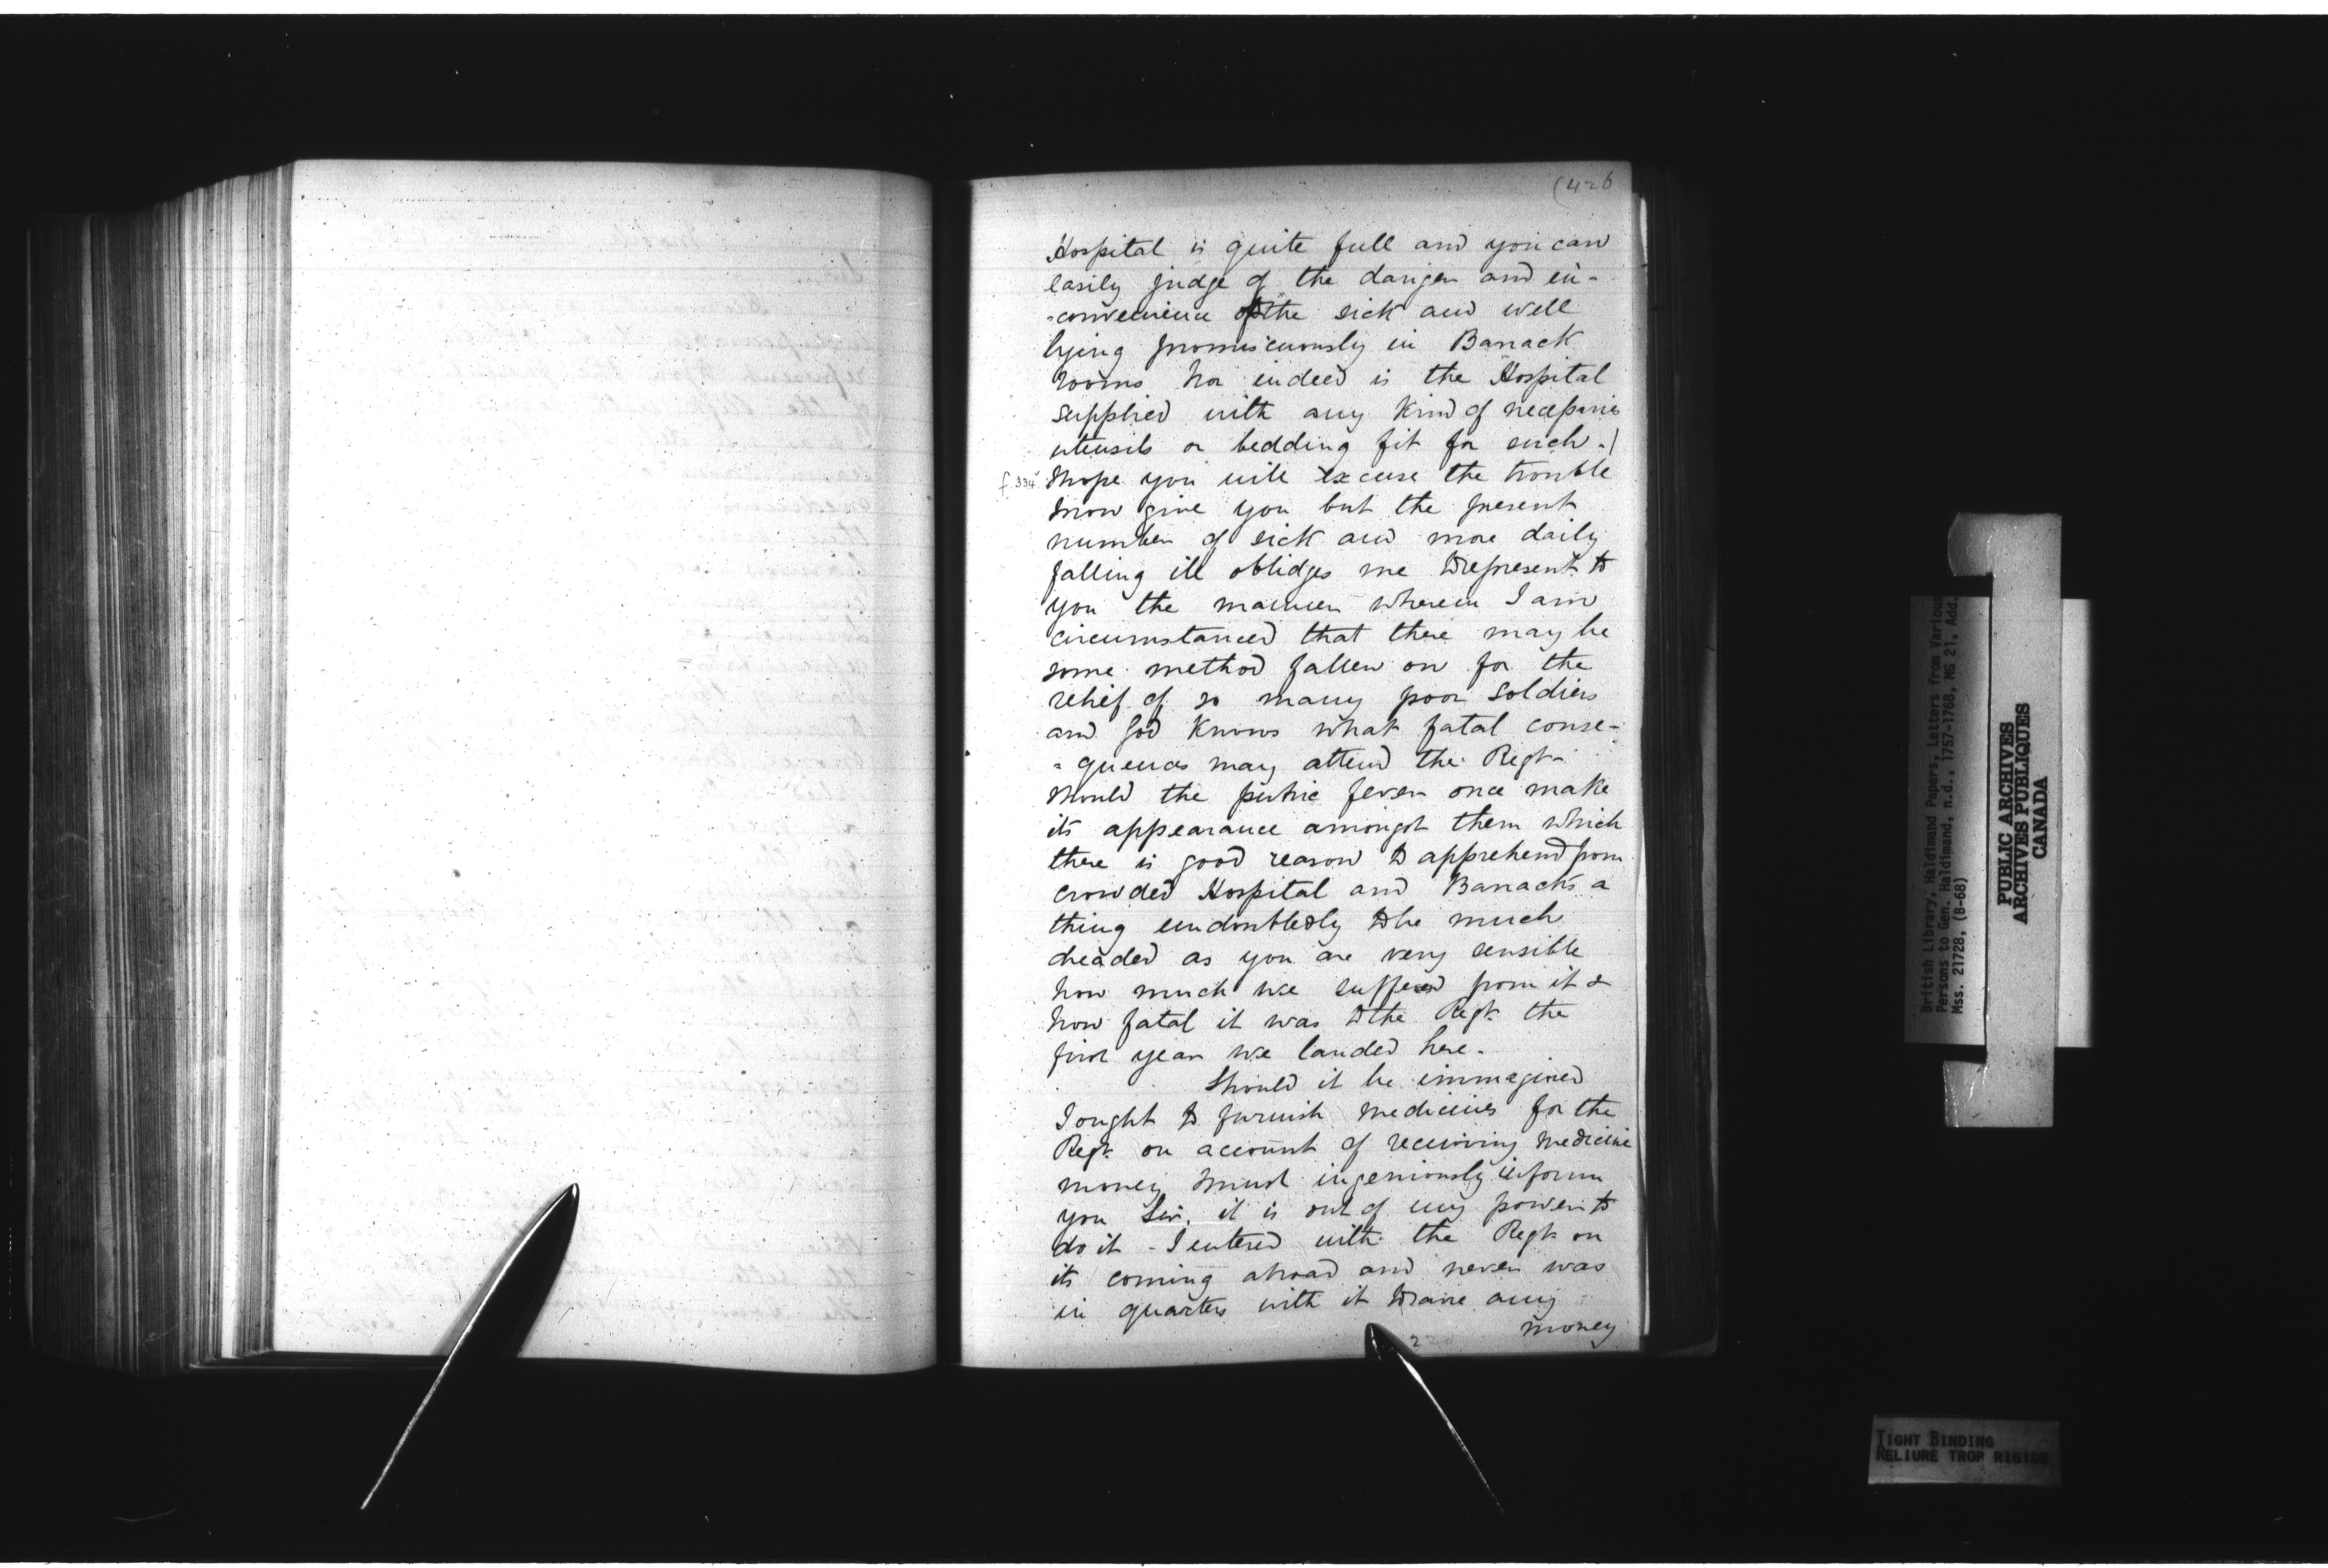 (426
Hospital is quite full and you can
easily judge of the danger and in-
-convenience of the sick and well
lying promiscuously in Barrack
rooms nor indeed is the Hospital
supplied with any kind of necessarie
utensils or bedding fit for such. I
f.334 hope you will excuse the trouble
I now give you but the present
number of sick and more daily
falling ill oblidges me to represent to
you the manner wherein I am
circumstanced that there may be
some method fallen on for the
relief of so many poor soldiers
and God knows what fatal conse-
-quences may attend the Regt.
should the putric fever once make
its appearance amongst them which
there is good reason to apprehend from
crowded Hospital and Barracks a
thing undoubtedly to be much
dreaded as you are very sensible
how much we suffered from it &
how fatal it was to the Regt. the
first year we landed here.
Should it be immagined
I ought to furnish medicines for the
Regt. on account of receiving medicine
money I must ingeniously inform
you Sir, it is out of my power to
do it - I entered with the Regt. on
its coming abroad and never was
in quarters with it to save any
money
British Library, Haldimand Papers, Letters from Various
Persons to Gen. Haldimand, n.d., 1757-1768, MG 21, Add.
Mss. 21728, (B-68)
PUBLIC ARCHIVES
ARCHIVES PUBLIQUES
CANADA
TIGHT BINDING
RELIURE TROP RIGIDE